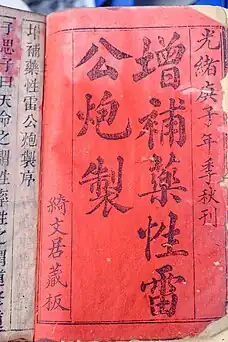 光緒庚子年季秋刊
增補藥性雷
公炮製
綺文居藏板
增補藥性雷公炮製序
子思子曰天命之謂性率性之謂道